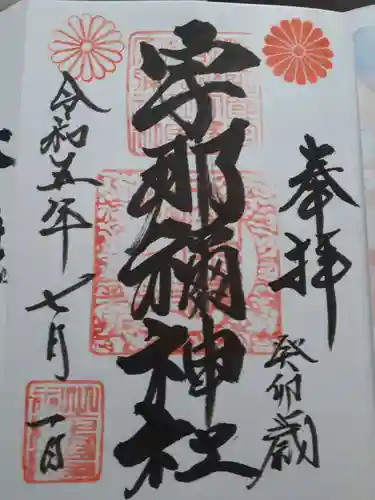 奉拝
癸卯歳
宇那禰神社
令和五年
七月一日